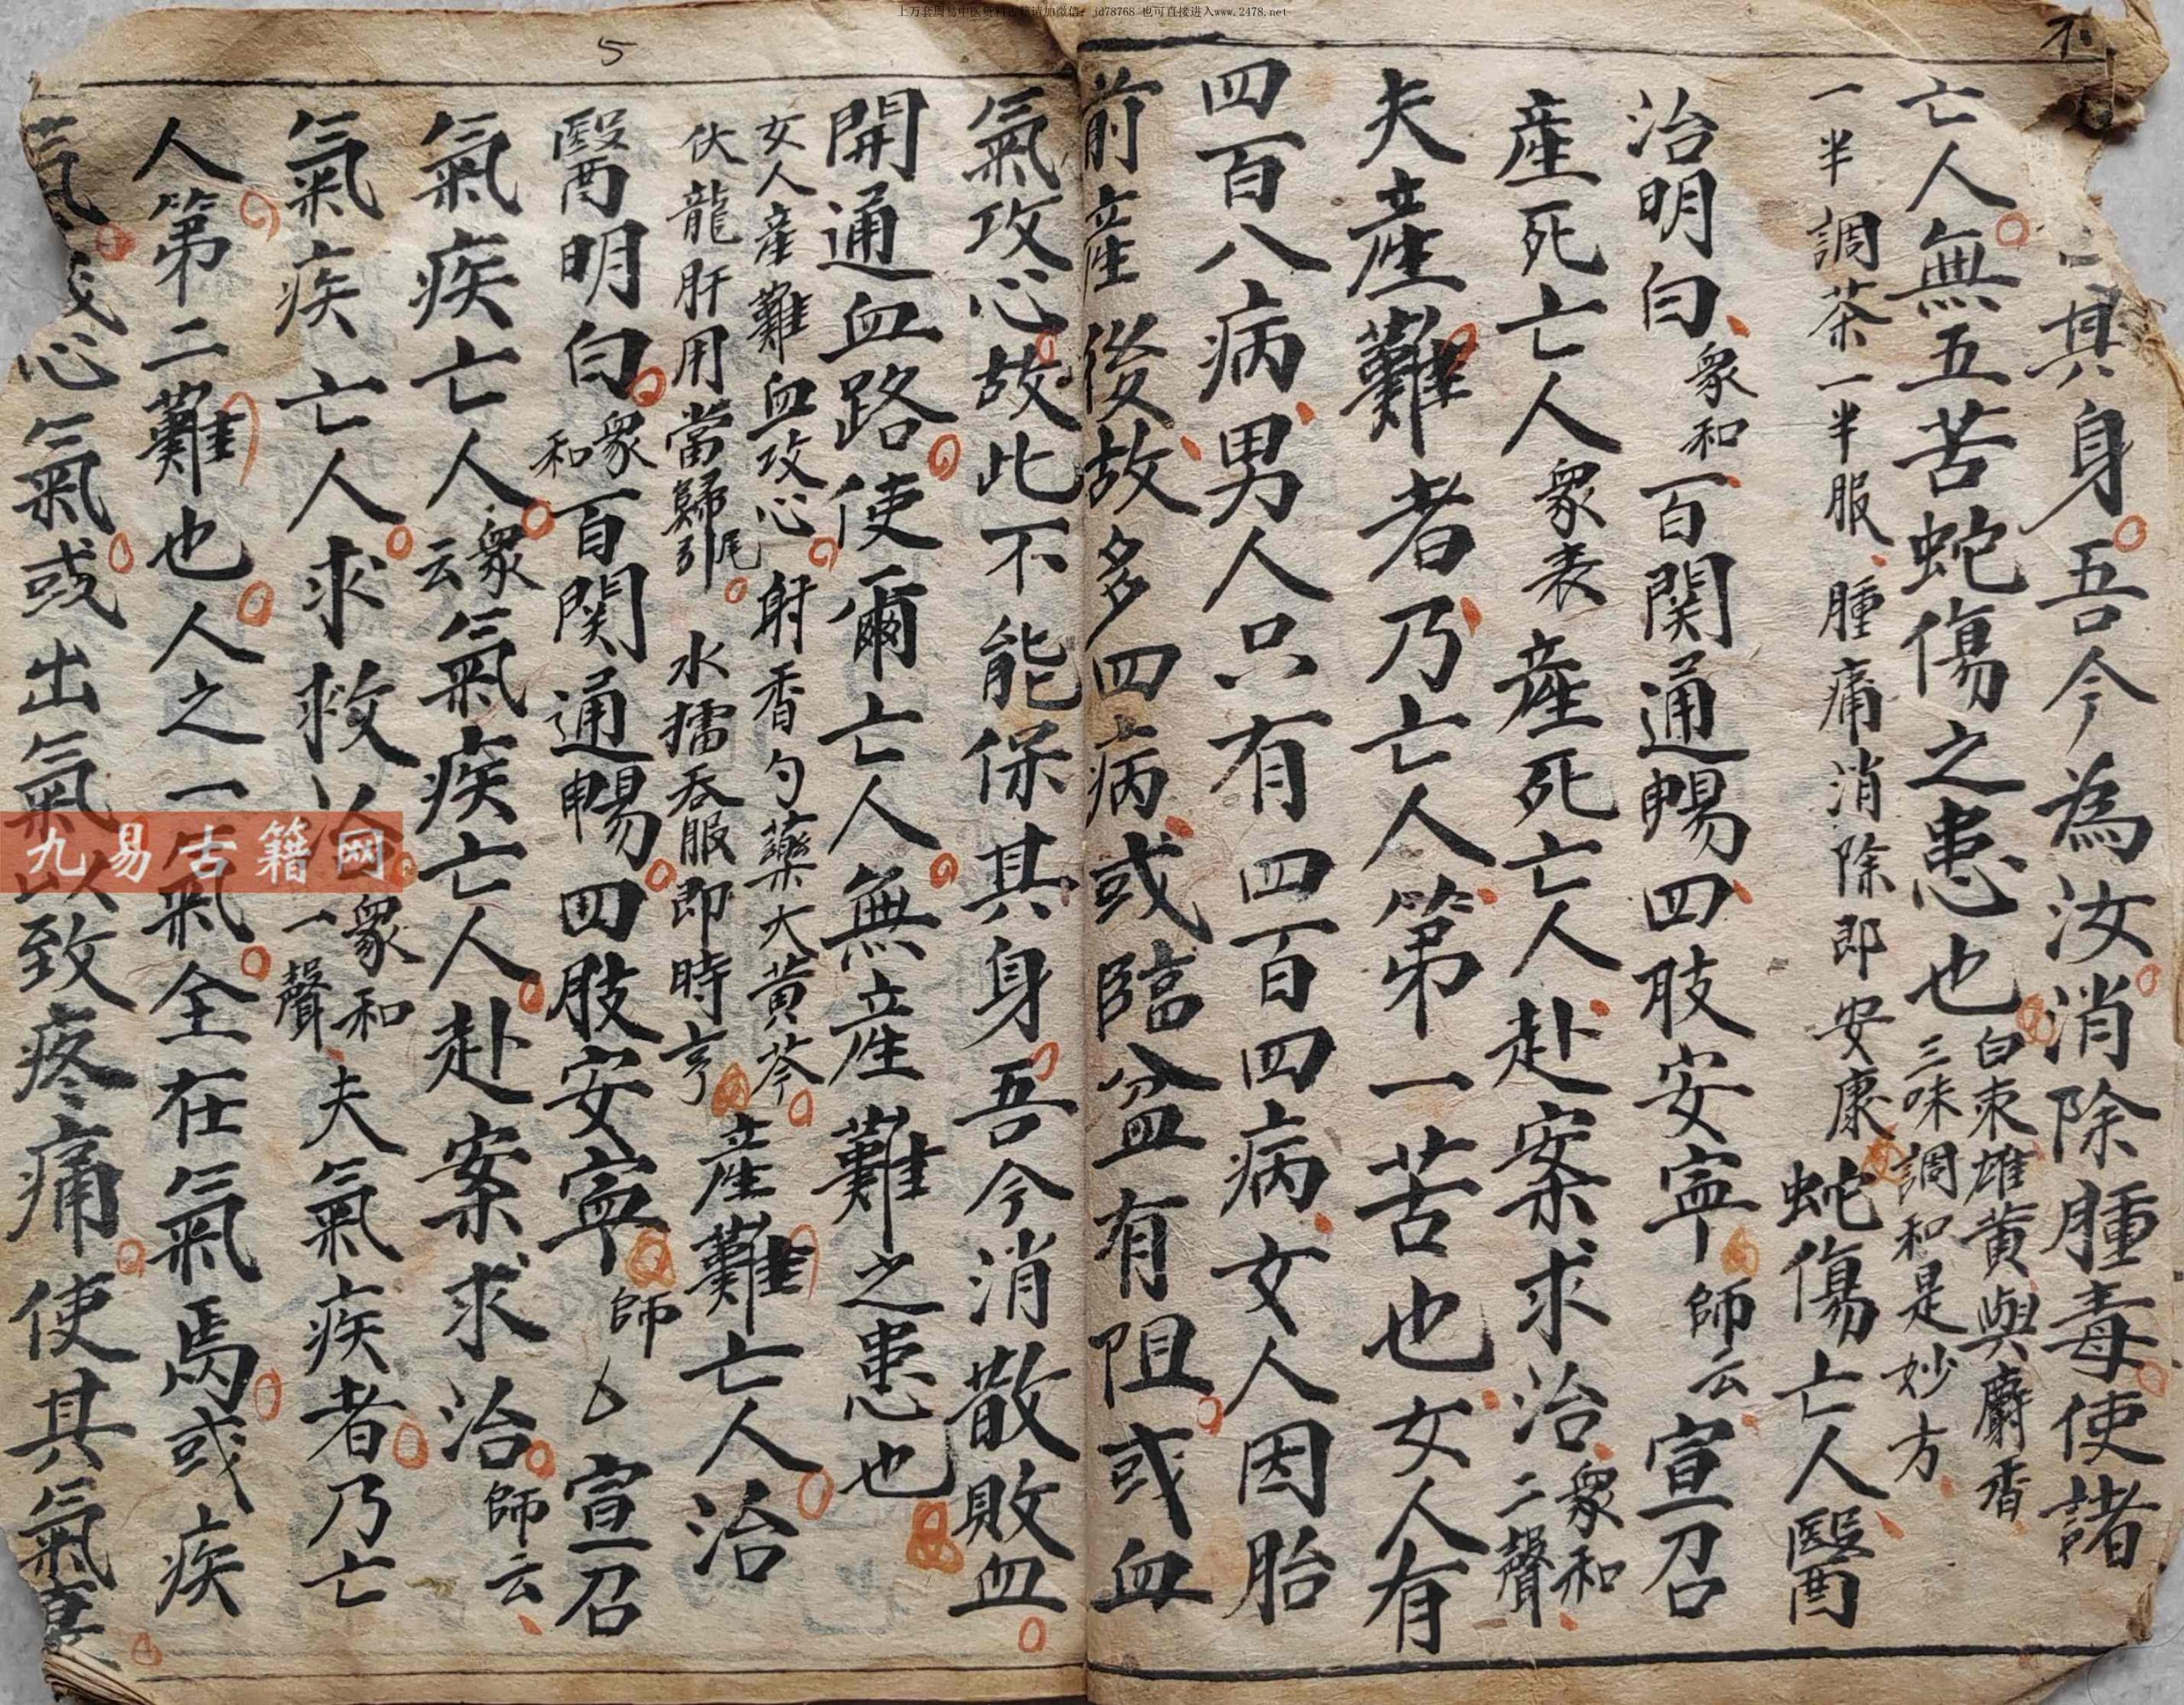 上万套周易中医资料古籍请加微信: jd78768 也可直接进入www.2478.net
不
其身吾今為汝消除腫毒使諸
亡人無五苦蛇傷之患也
白朿雄黄與麝香
三味調和是妙方
一半調茶一半服腫痛消除即安康
蛇傷亡人醫
治明白衆和百関通暢四肢安寜師云宣召
產死亡人衆表產死亡人赴案求治衆和二聲
夫產難者乃亡人第一苦也女人有
四百八病男人只有四百四病女人因胎
前產後故多四病或臨盆有阻或血
氣攻心故此不能保其身吾今消散敗血
開通血路使爾亡人無產難之患也
女人產難血攻心射香勺藥大黄芩
伏龍肝用當歸尾引水擂吞服即時亨
產難亡人治
醫明白衆和百関通暢四肢安寜師宣召
氣疾亡人衆云氣疾亡人赴案求治師云
氣疾亡人求救衆和一聲夫氣疾者乃亡
人第二難也人之一氣全在氣焉或疾
心氣或出氣以致疼痛使其氣
5
九易古籍网